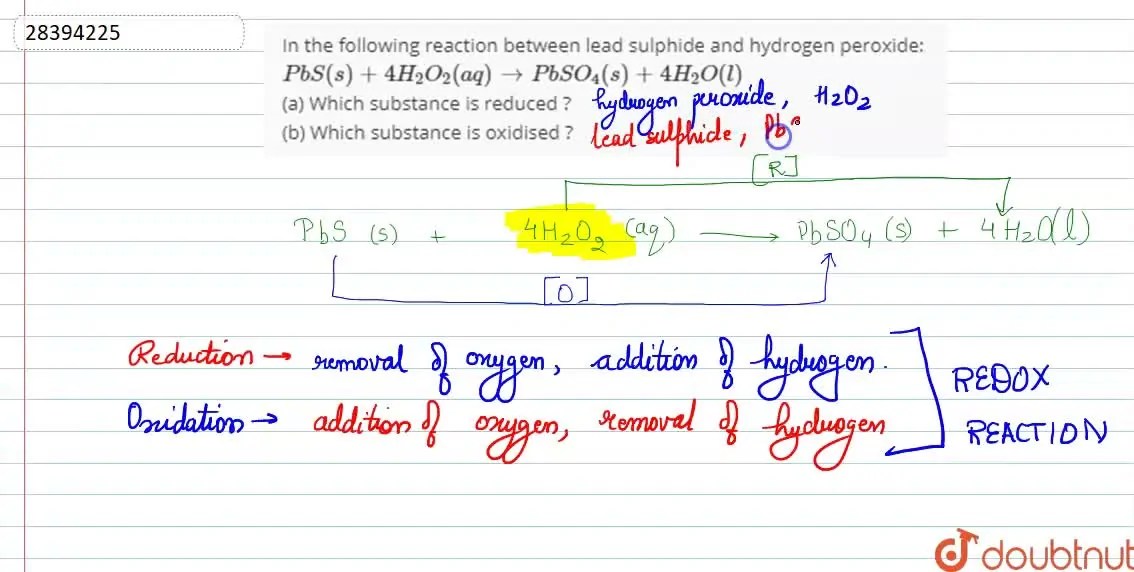 28394225
In the following reaction between lead sulphide and hydrogen peroxide:
PbS(s) + 4H₂O₂(aq) → PbSO₄(s) + 4H₂O(l)
(a) Which substance is reduced ? hydrogen peroxide, H₂O₂
(b) Which substance is oxidised ? lead sulphide, Pb
[R]
PbS (s) + 4H₂O₂ (aq) → PbSO₄ (s) + 4H₂O(l)
[O]
Reduction → removal of oxygen, addition of hydrogen.
Oxidation → addition of oxygen, removal of hydrogen
REDOX
REACTION
doubtnut